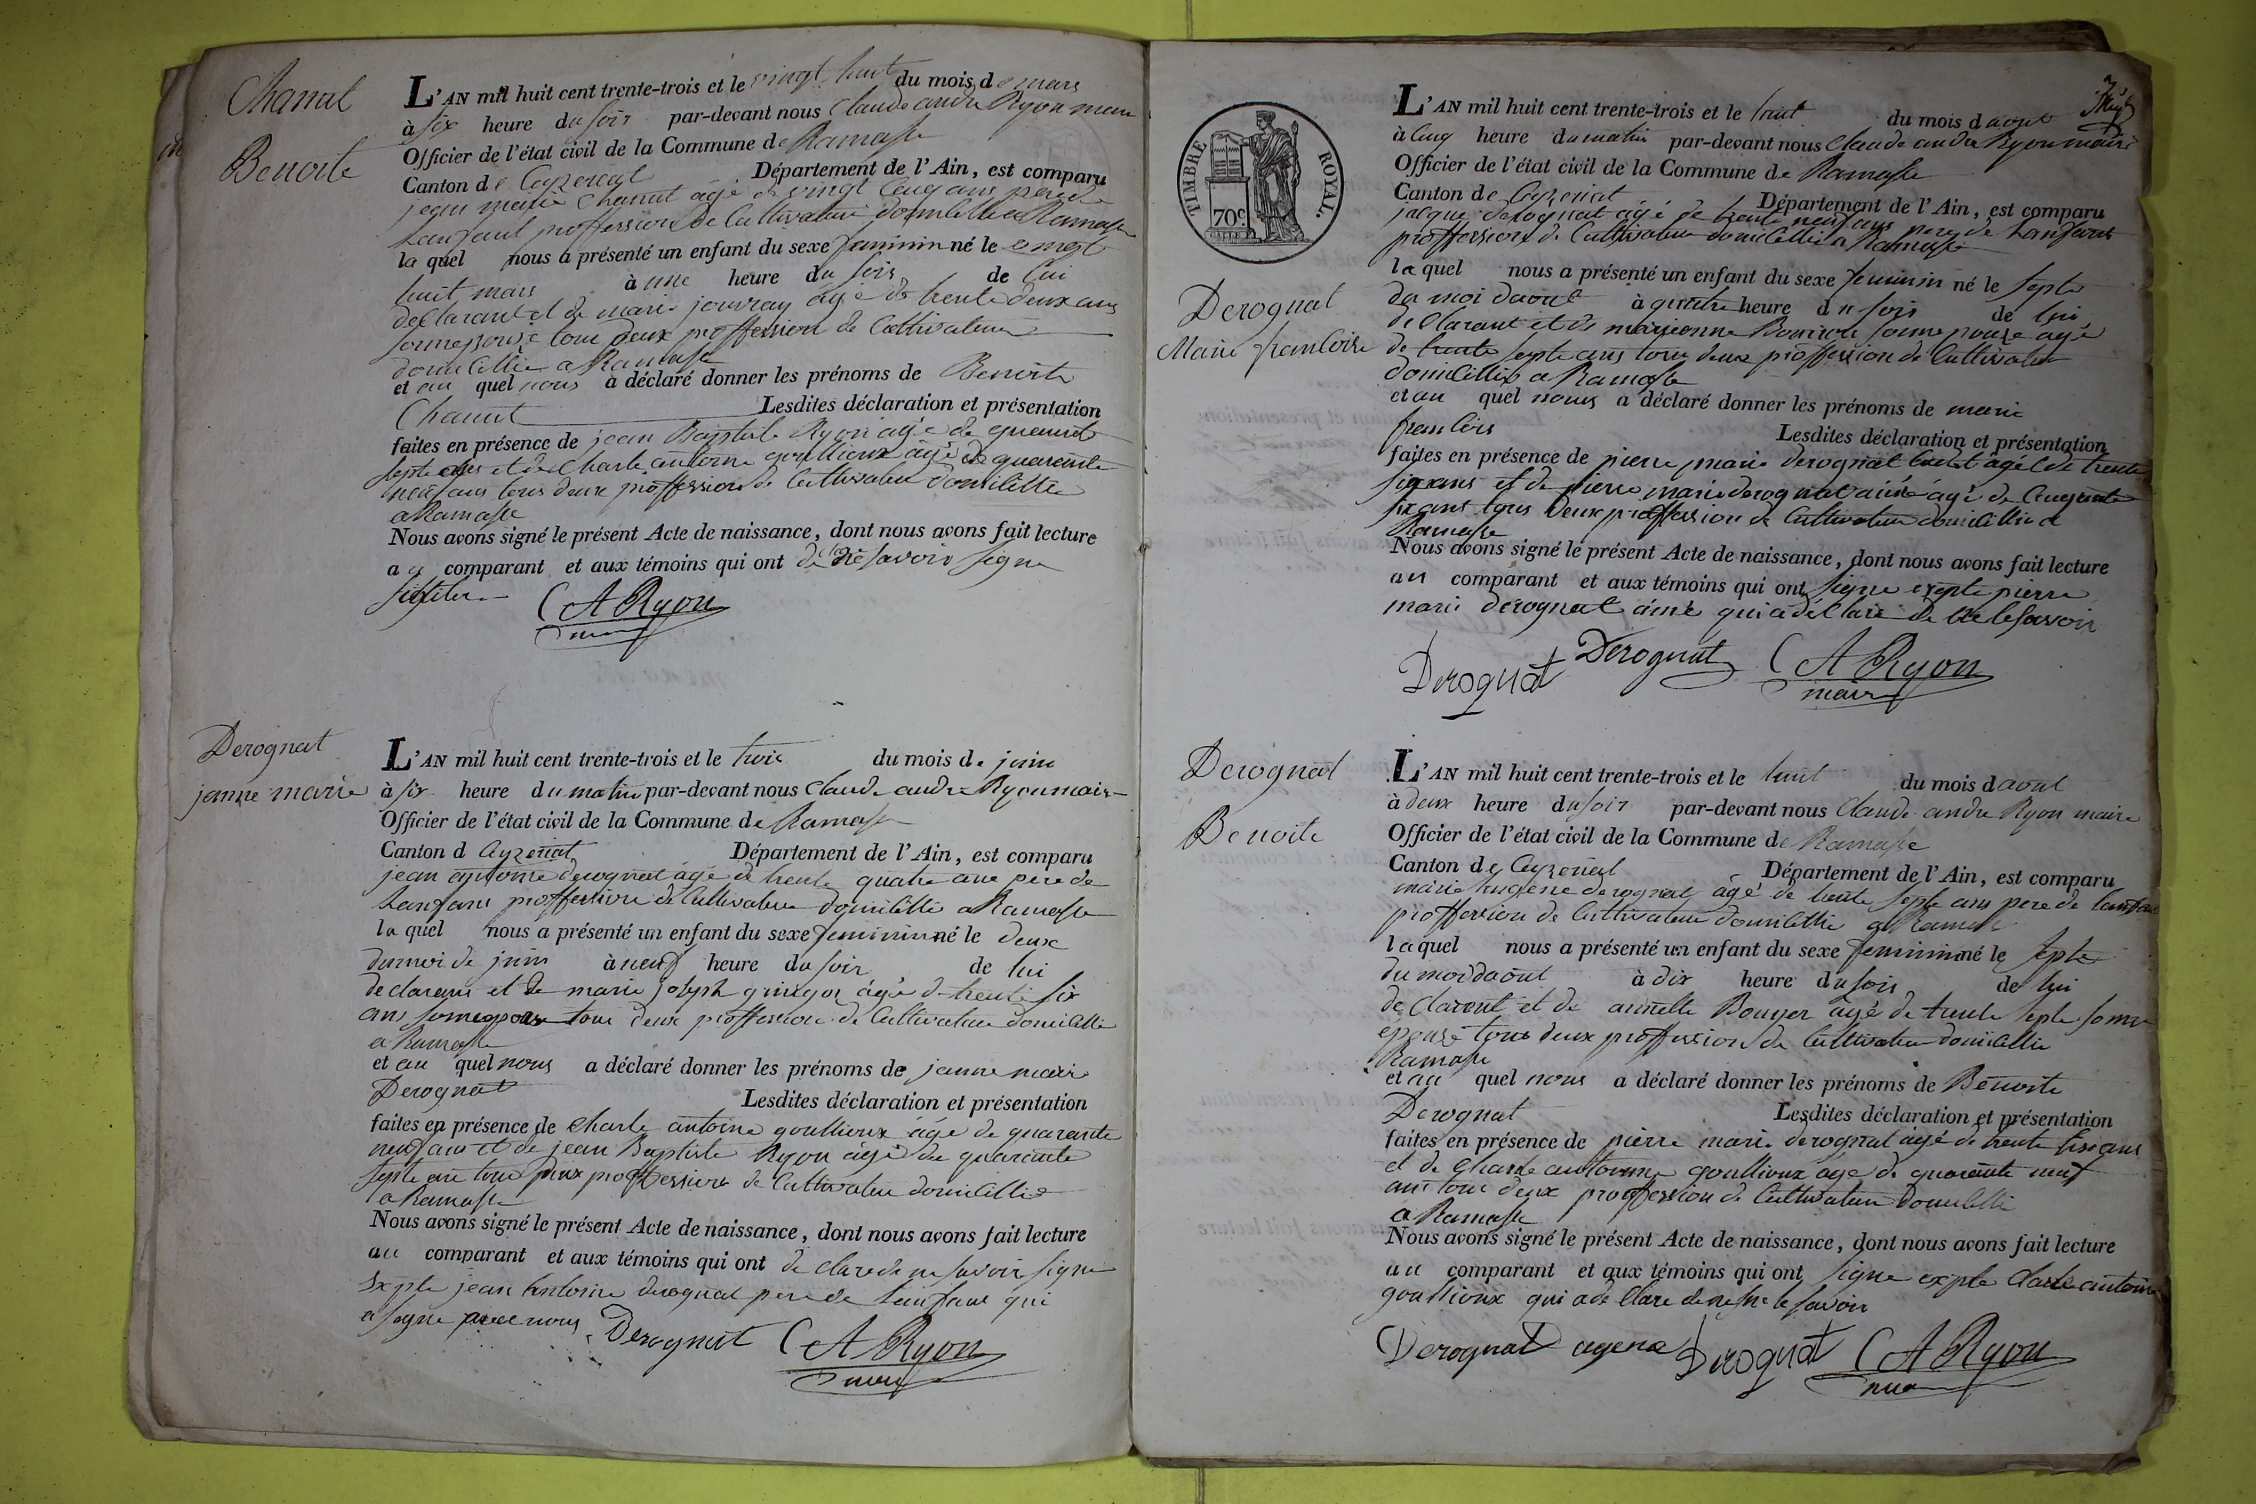 Chanal
Benoite
L'AN mil huit cent trente-trois et le vingt huit du mois de mars
à six heure du soir par-devant nous Claude andre Ryon maire
Officier de l'état civil de la Commune de Ramasse
Canton de Ceyzeriat Département de l'Ain, est comparu
jean marie Chanut agé de vingt Cinq ans pere de
Lanfant proffession de Cultivateur domicillie a Ramasse
la quel nous a présenté un enfant du sexe faminin né le vingt
huit mars à une heure du soir de lui
declarant et de marie jouvray agé de trente deux ans
sonnepouse tous deux proffession de Cultivateur
domicillie a Ramasse
et au quel nous a déclaré donner les prénoms de Benoite
Chanut Lesdites déclaration et présentation
faites en présence de jean Baptiste Ryon agé de quarante
septe ans et de Charle antoine goullioux agé de quarente
neuf ans tous deux proffession de Cultivateur domicillie
a Ramasse
Nous avons signé le présent Acte de naissance, dont nous avons fait lecture
au comparant et aux témoins qui ont de ne savoir signe
CA Ryon
maire
Derognat
janne marie
L'AN mil huit cent trente-trois et le trois du mois de juin
à six heure du matin par-devant nous Claude andre Ryon maire
Officier de l'état civil de la Commune de Ramasse
Canton d Ceyzeriat Département de l'Ain, est comparu
jean antoine derognat agé de trente quatre ans pere de
Lanfans proffession de Cultivateur domicillie a Ramasse
la quel nous a présenté un enfant du sexe feminin né le deux
du moi de juin à neuf heure du soir de lui
declarans et de marie joseph gringoz agé de trente six
ans sonnepouse tous deux proffession de Cultivateur domicillie
a Ramasse
et au quel nous a déclaré donner les prénoms de janne marie
Derognat Lesdites déclaration et présentation
faites en présence de Charle antoine goullioux agé de quarante
neuf ans et de jean Baptiste Ryon agé de quarente
septe ans tous deux proffession de Cultivateur domicillie
a Ramasse
Nous avons signé le présent Acte de naissance, dont nous avons fait lecture
au comparant et aux témoins qui ont de clare de ne savoir signe
exple jean antoine derognat pere de lanfant qui
a signe avec nous Derognat CA Ryon
maire
TIMBRE ROYAL.
70c
Derognat
Marie francloise
L'AN mil huit cent trente-trois et le huit du mois d aout
à Cinq heure du matin par-devant nous Claude andre Ryon maire
Officier de l'état civil de la Commune de Ramasse
Canton de Ceyzeriat Département de l'Ain, est comparu
jacque derognat agé de trente neuf ans pere de Lanfant
proffession de Cultivateur domicillie a Ramasse
la quel nous a présenté un enfant du sexe feminin né le septe
du moi daout à quatre heure du soir de lui
declarant et de marienne sonnepouse agé
de trente septe ans tous deux proffession de Cultivateur
domicillie a Ramasse
et au quel nous a déclaré donner les prénoms de marie
franlois Lesdites déclaration et présentation
faites en présence de pierre marie derognat Cadet agé de trente
six ans et de pierre marie derognat ainé agé de Cinquante
six ans tous deux proffession de Cultivateur domicillie a
Ramasse
Nous avons signé le présent Acte de naissance, dont nous avons fait lecture
au comparant et aux témoins qui ont signe exepte pierre
marie derognat ainé qui a declare de ne le savoir
Derognat Derognat CA Ryon
maire
Derognat
Benoite
L'AN mil huit cent trente-trois et le huit du mois d aout
à deux heure du soir par-devant nous Claude andre Ryon maire
Officier de l'état civil de la Commune de Ramasse
Canton de Ceyzeriat Département de l'Ain, est comparu
marie hugene derognat agé de trente septe ans pere de lanfan
proffession de Cultivateur domicillie a Ramasse
la quel nous a présenté un enfant du sexe feminin né le septe
du moi daout à dix heure du soir de lui
declarant et de annette Bouyer agé de trente septe sonne
epouse tous deux proffession de Cultivateur domicillie
Ramasse
et au quel nous a déclaré donner les prénoms de Benoite
Derognat Lesdites déclaration et présentation
faites en présence de pierre marie derognat agé de trente six ans
et de Charle antoinne goullioux age de quarente neuf
ans tous deux proffession de Cultivateur domicillie
a Ramasse
Nous avons signé le présent Acte de naissance, dont nous avons fait lecture
au comparant et aux témoins qui ont signe exple Charle antoine
goullioux qui a de Clare de ne le savoir
Derognat Derognat CA Ryon